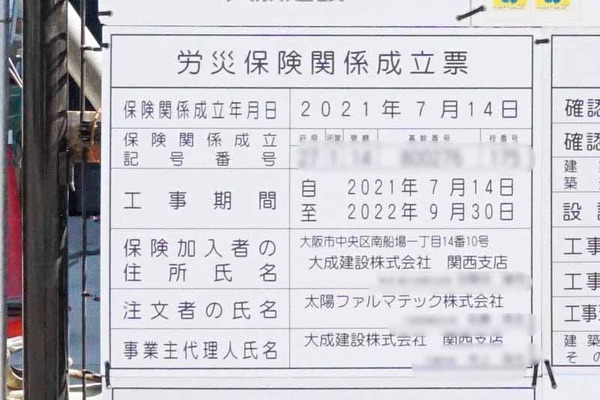 労災保険関係成立票
保険関係成立年月日 2021年 7月14日
保険関係成立 府県 所掌 管轄 基幹番号 枝番号
記号番号
工事期間 自 2021年 7月14日
至 2022年 9月30日
保険加入者の 大阪市中央区南船場一丁目14番10号
住所氏名 大成建設株式会社 関西支店
注文者の氏名 太陽ファルマテック株式会社
事業主代理人氏名 大成建設株式会社 関西支店
確認
確認
建
築
設
工事
工事
工事
建築
その